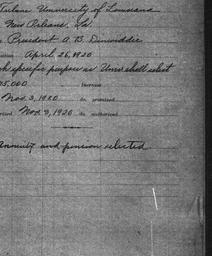 Tulane University of Louisiana
New Orleans, La.
President A. B. Dinwiddie
April 26, 1920
specific purpose as Univ. shall select
5,000 Income
Nov. 3, 1920 do. promised
Nov. 9, 1920 do. authorized
Annuity and pension selected